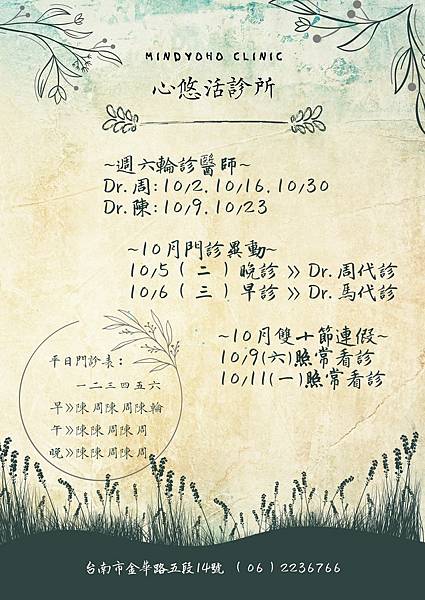 MINDYOHO CLINIC
心悠活診所
~週六輪診醫師~
Dr.周:10/2.10/16.10/30
Dr.陳:10/9.10/23
~10月門診異動~
10/5(二)晚診》Dr.周代診
10/6(三)早診》Dr.馬代診
~10月雙十節連假~
10/9(六)照常看診
10/11(一)照常看診
平日門診表:
一二三四五六
早》陳周陳周陳輪
午》陳陳周陳周
晚》陳陳周陳周
台南市金華路五段14號 (06)2236766